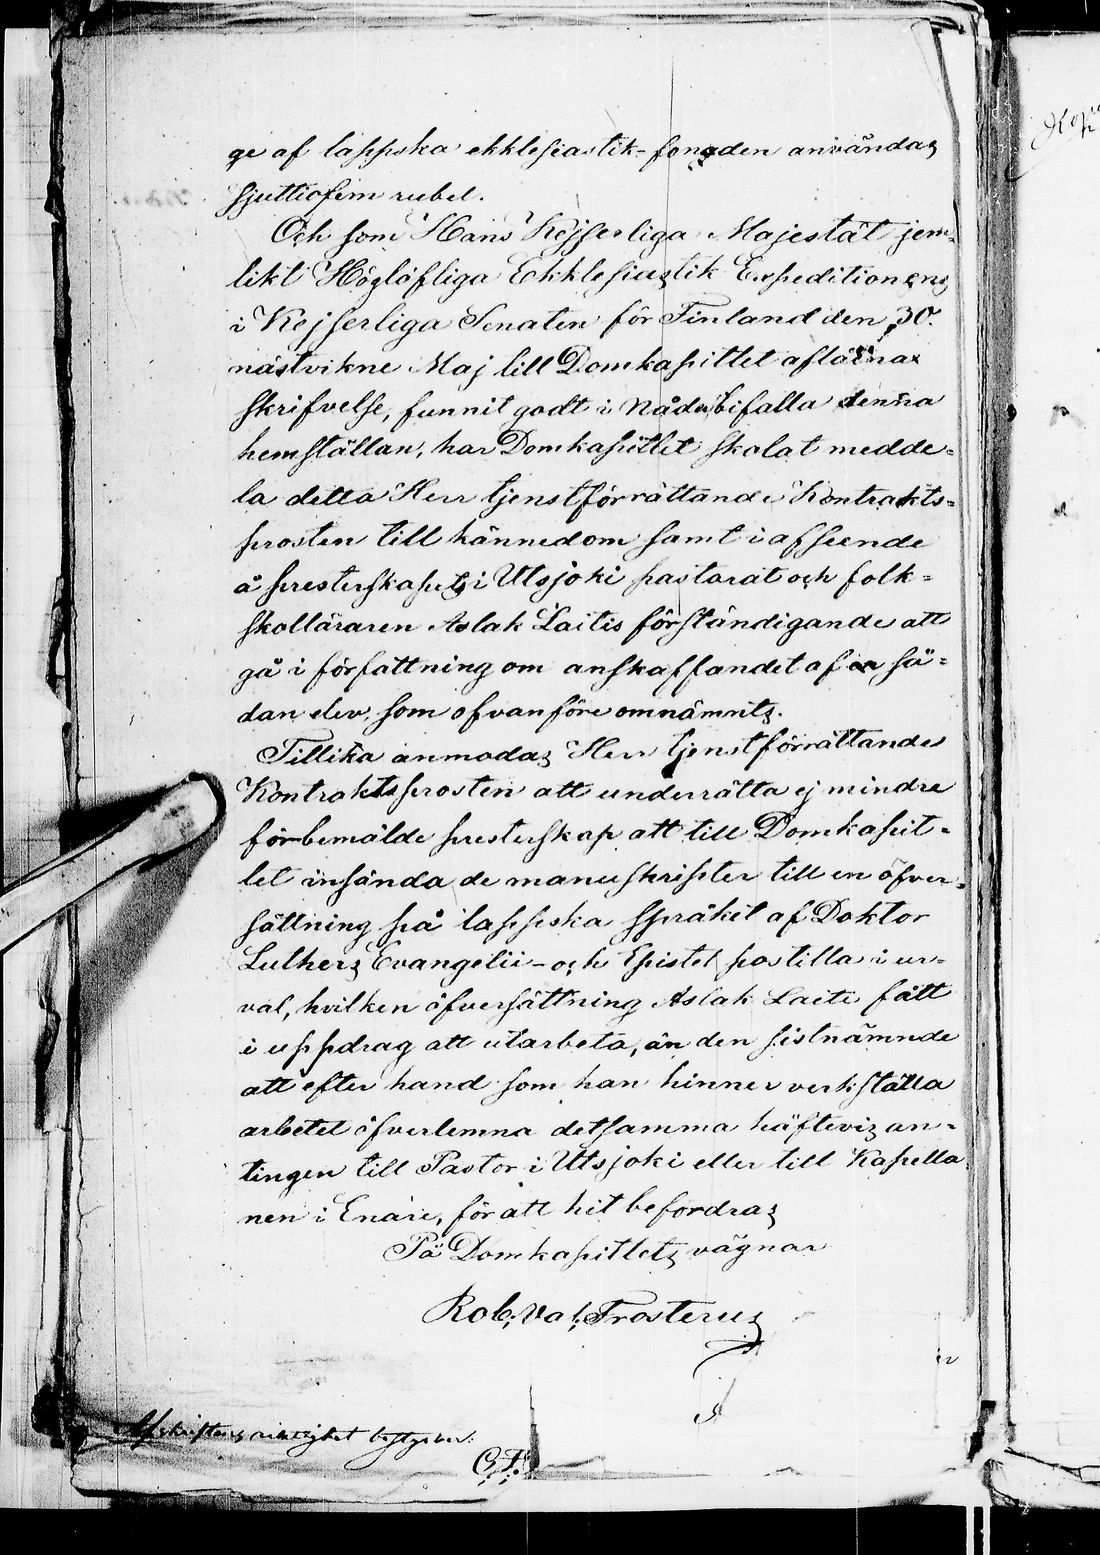 ge af lappska ekklesiastik-fonden användas
sjuttiofem rubel.
Och som Hans Kejserliga Majestät jem-
likt Höglofliga Ekklesiastik Expeditionens
i Kejserliga Senaten för Finland den 30.
nästvikne Maj till Domkapitlet aflåtna
skrifvelse, funnit godt i Nåder bifalla denna
hemställan, har Domkapitlet skolat medde-
la detta Herr tjenstförrättande Kontrakts-
prosten till kännedom samt i afseende
å presterskapets i Utsjoki pastorat och folk-
skolläraren Aslak Laitis förständigande att
gå i författning om anskaffandet af en så-
dan elev, som ofvanföre omnämnts.
Tillika anmodas Herr tjenstförrättande
Kontraktsprosten att underrätta ej mindre
förbemälde presterskap att till Domkapit-
let insända de manuskripter till en öfver-
sättning på lappska språket af Doktor
Luthers Evangelii- och Epistel postilla i ur-
val, hvilken öfversättning Aslak Laiti fått
i uppdrag att utarbeta, än den sistnämnde
att efter hand som han hinner verkställa
arbetet öfverlemna detsamma häftevis an-
tingen till Pastor i Utsjoki eller till Kapella-
nen i Enare, för att hit befordras
På Domkapitlets vägnar
Rob: Val: Frosterus
Afskriftens riktighet bestyrker: